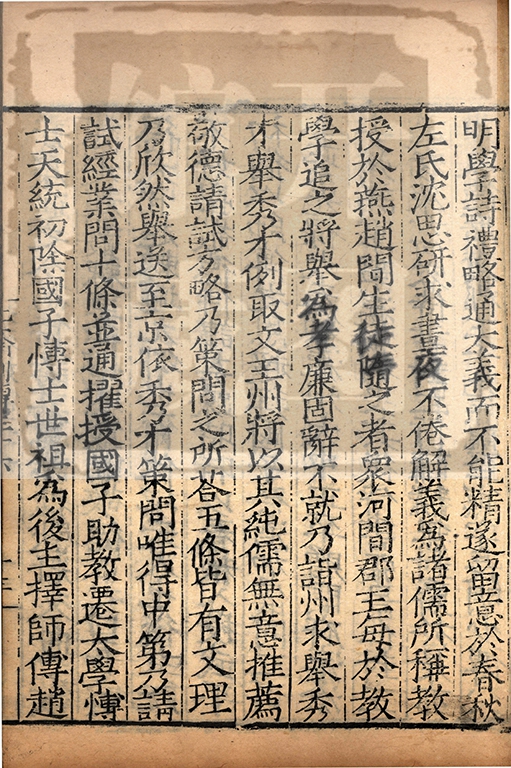 明學詩禮略通大義而不能精遂留意於春秋
左氏沈思研求晝夜不倦解義為諸儒所稱教
授於燕趙間生徒隨之者衆河間郡王每於教
學追之將舉為孝廉固辭不就乃詣州求舉秀
才舉秀才例取文士州將以其純儒無意推薦
敬德請試方略乃策問之所荅五條皆有文理
乃欣然舉送至京依秀才策問唯得中第乃請
試經業問十條並通擢授國子助教遷太學博
士天統初除國子博士世祖為後主擇師傅趙